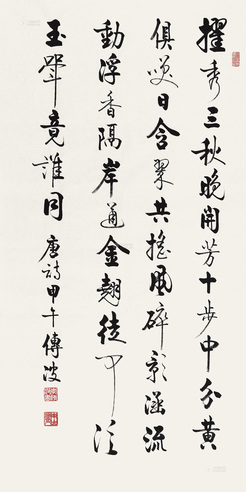 擢秀三秋晚開芳十步中分黃
俱咲日含翠共搖風碎影涵流
動浮香隔岸通金翹徒可泛
玉斝竟誰同 唐詩甲午傅波